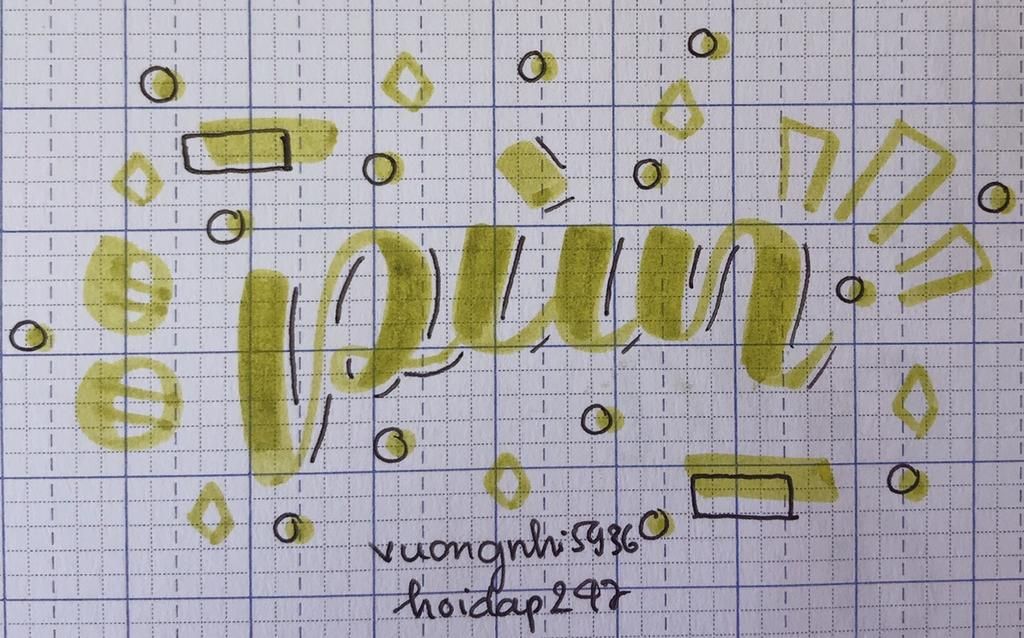 pun
vuongnhi5936
hoidap247